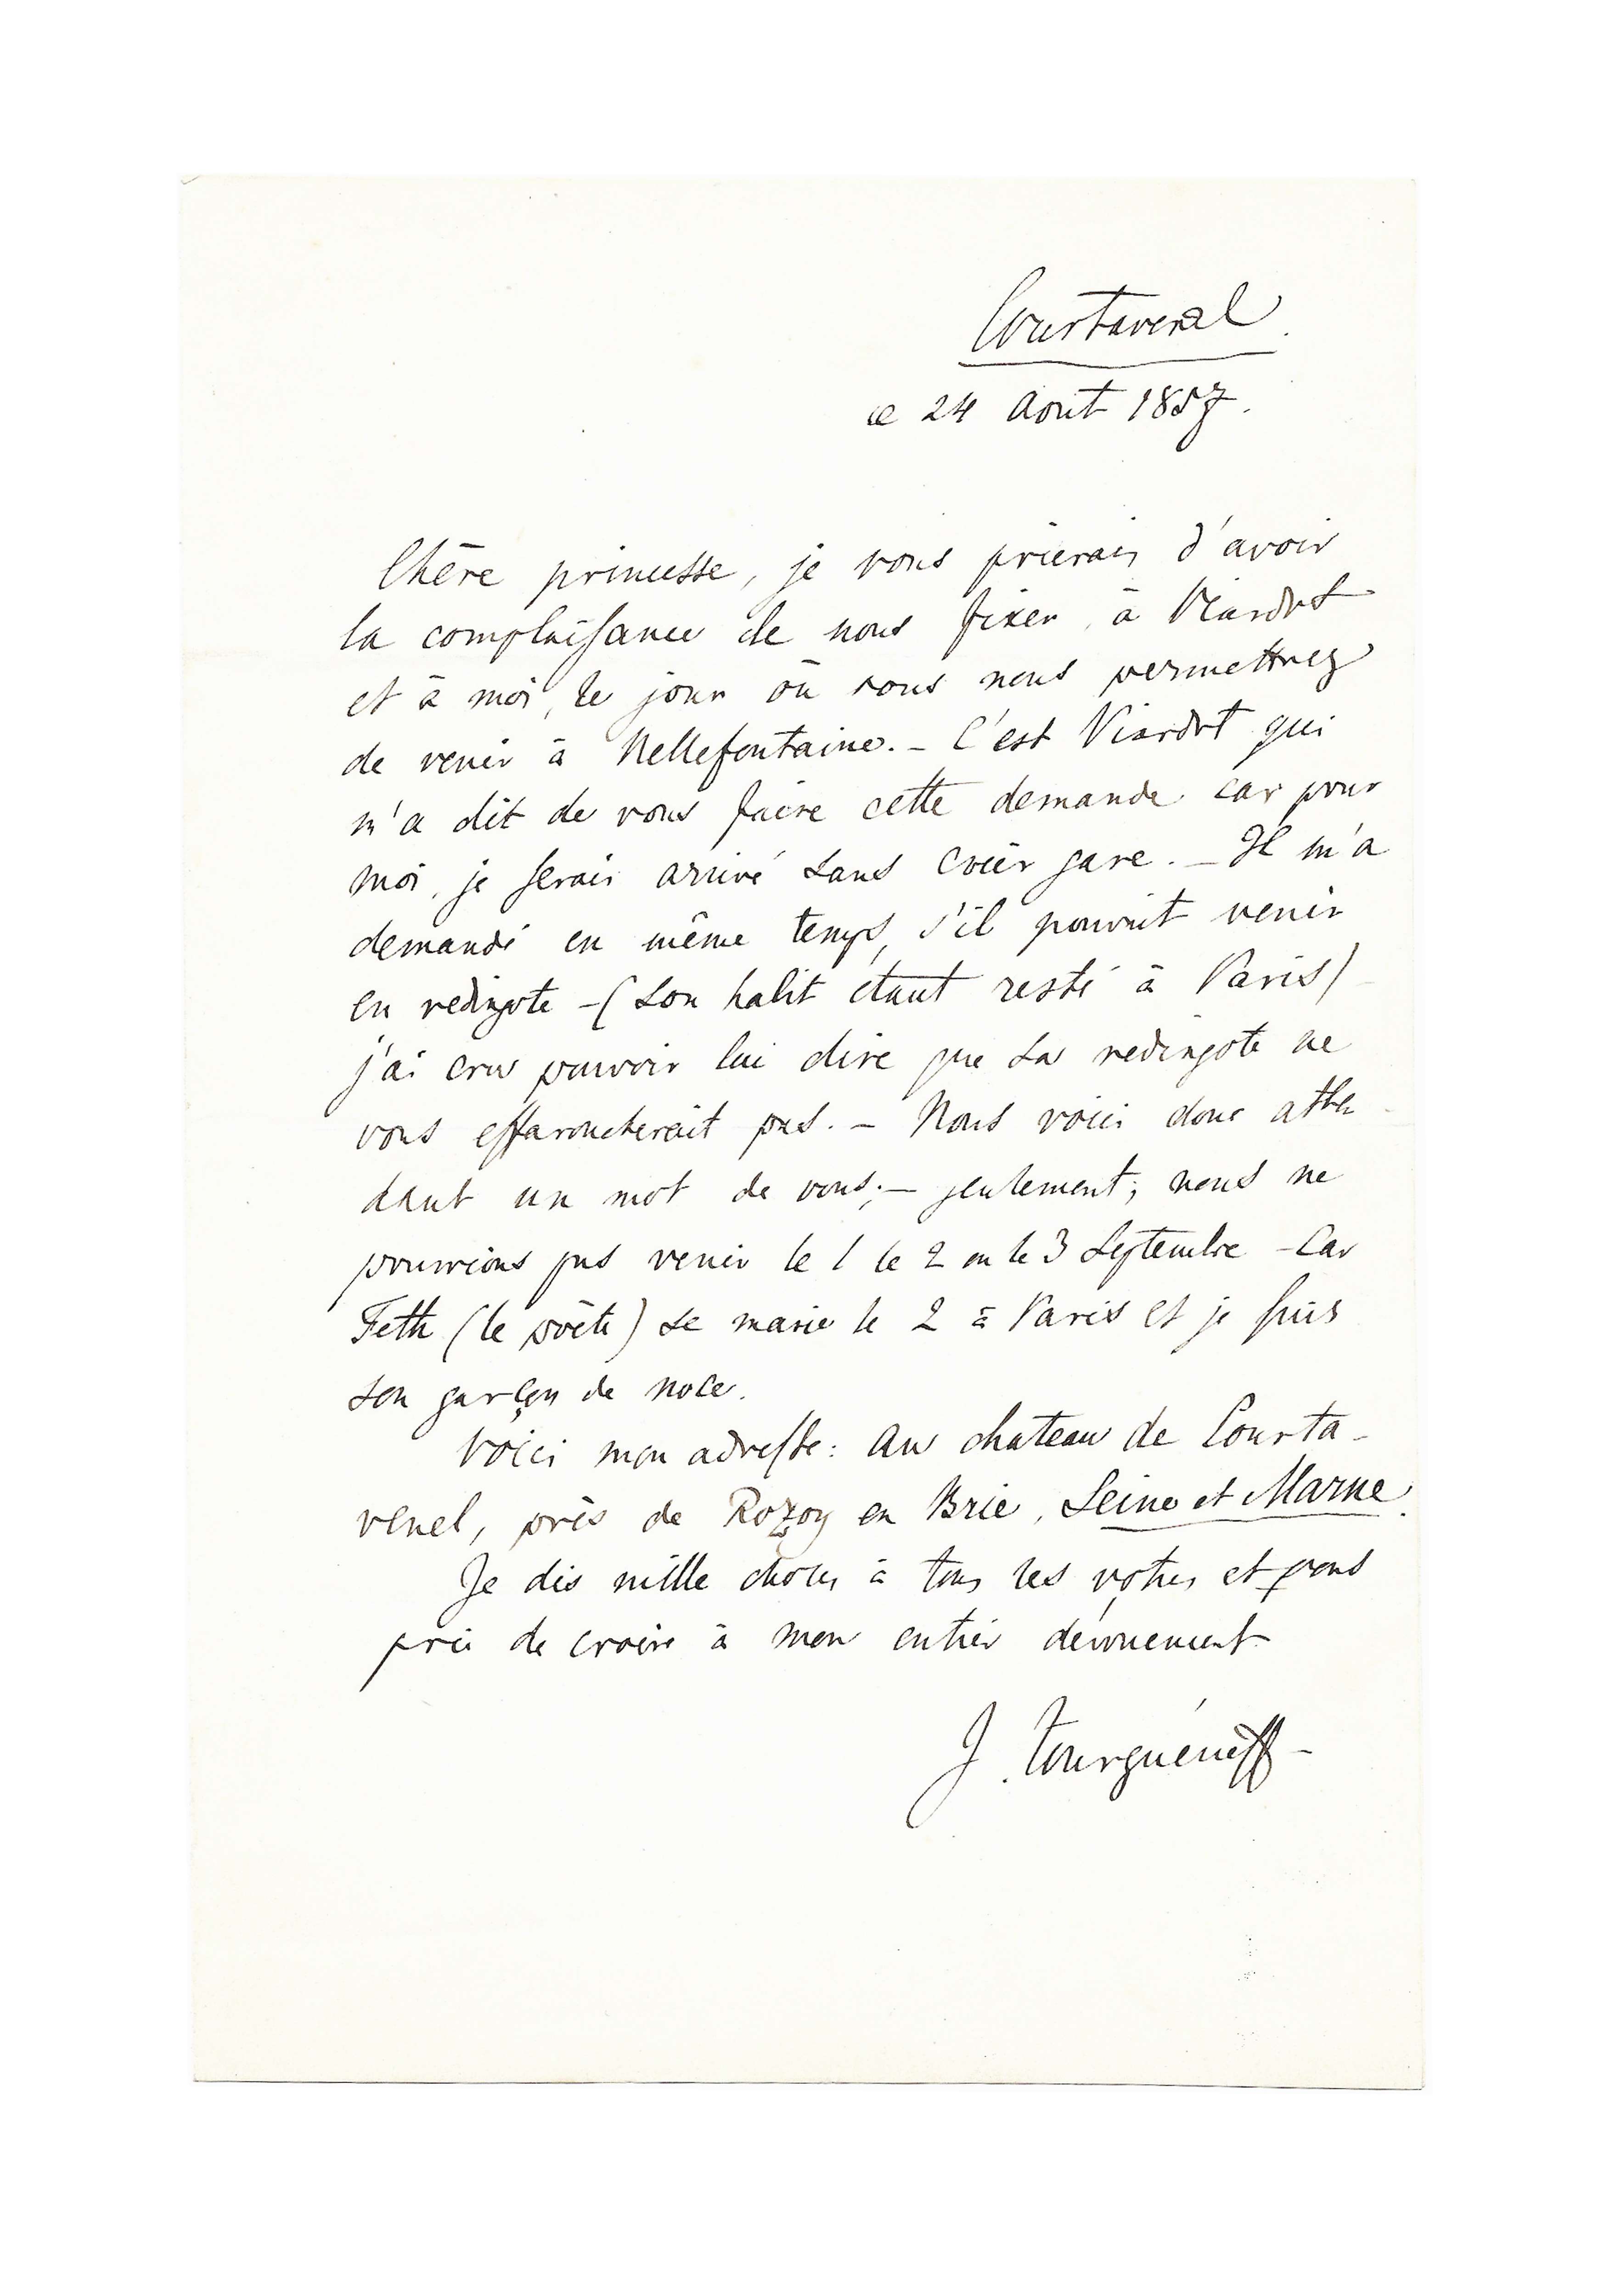 Courtavenel
ce 24 Aout 1857.
Chère princesse, je vous prierais d'avoir
la complaisance de nous fixer, à Viardot
et à moi, le jour où vous nous permettrez
de venir à Bellefontaine. – C'est Viardot qui
m'a dit de vous faire cette demande car pour
moi, je serais arrivé sans crier gare. – Il m'a
demandé en même temps, s'il pouvait venir
en redingote – (son habit étant resté à Paris)
j'ai cru pouvoir lui dire que sa redingote ne
vous effaroucherait pas. – Nous voici donc atten-
dant un mot de vous; – seulement, nous ne
pourrions pas venir le 1 le 2 ou le 3 Septembre – Car
Feth (le poète) se marie le 2 à Paris et je suis
son garçon de noce.
Voici mon adresse: Au chateau de Courta-
venel, près de Rozoy en Brie, Seine et Marne.
Je dis mille choses à tous les vôtres et vous
prie de croire à mon entier dévouement
J. Tourguéneff –